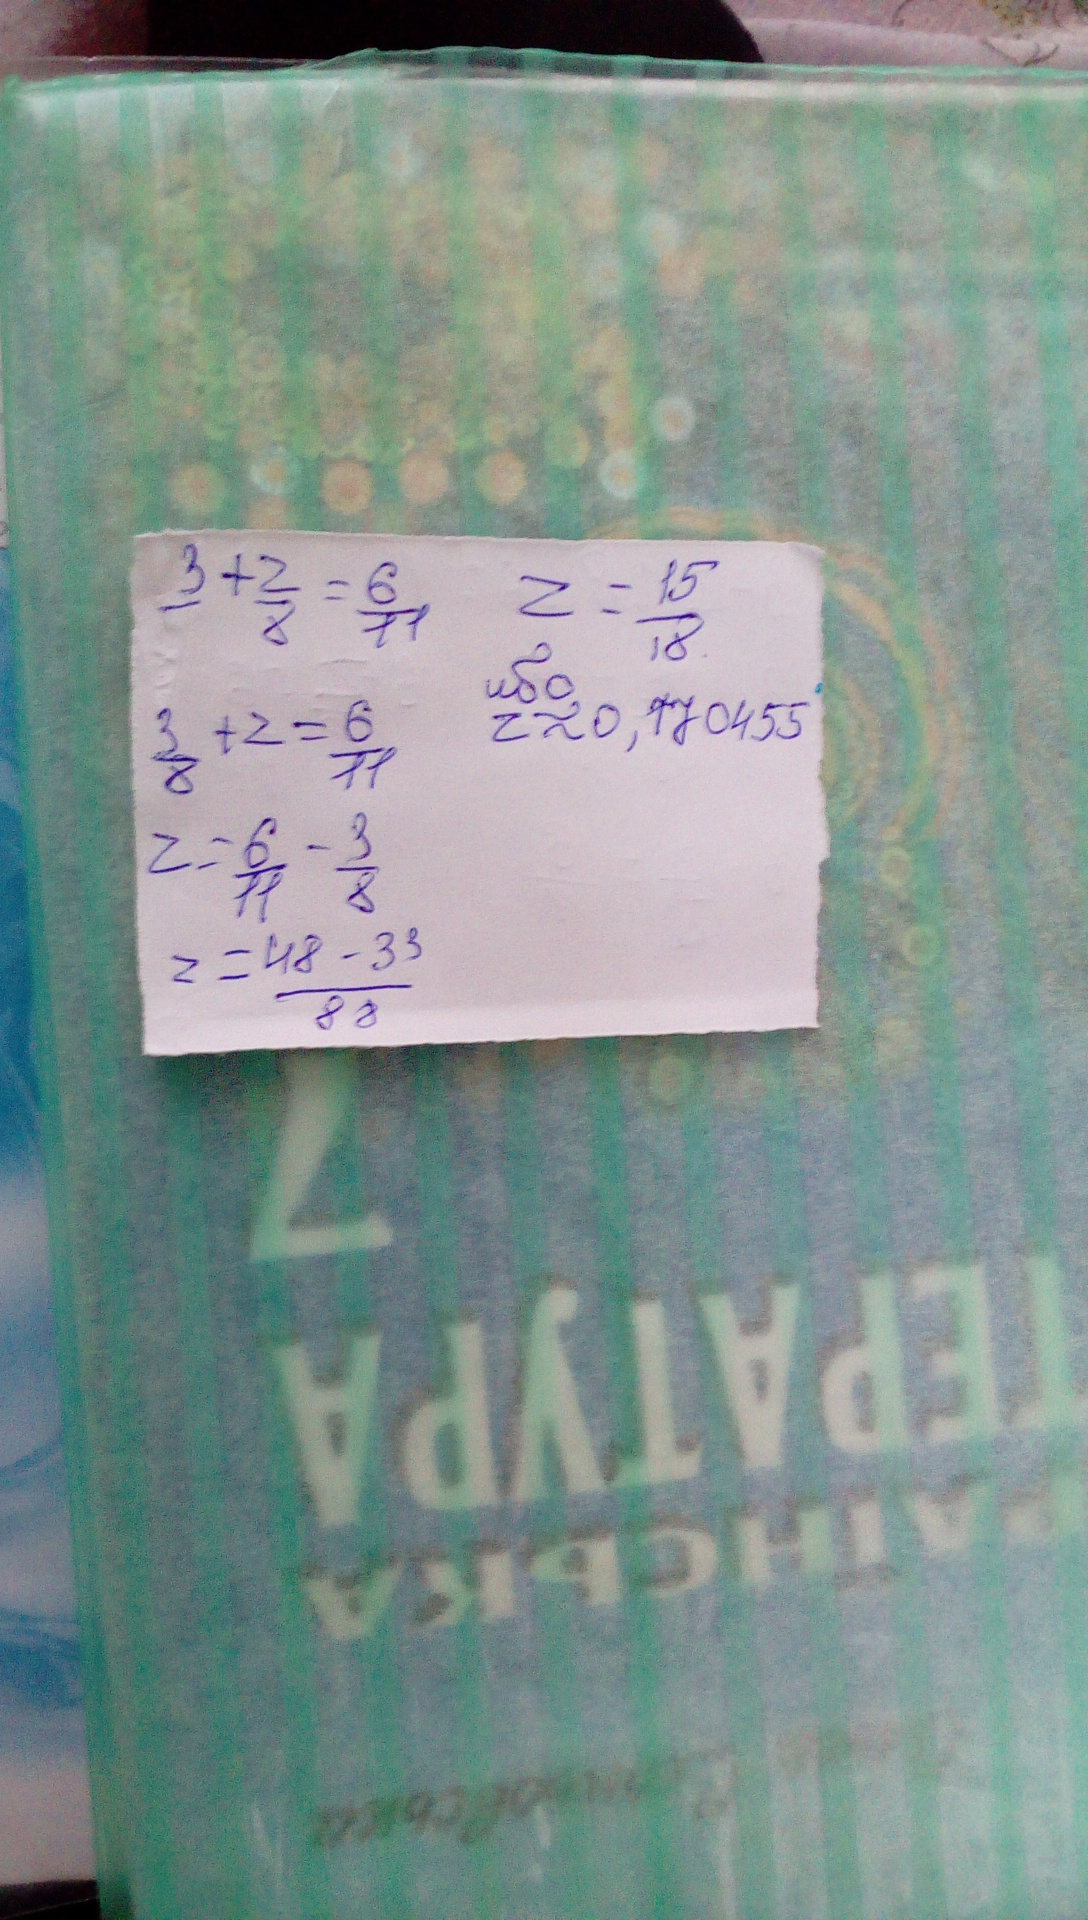 3 + z/8 = 6/11
3/8 + z = 6/11
z = 6/11 - 3/8
z = 48 - 33/88
z = 15/18
або
z ≈ 0,170455
7
ТЕРАТУРА
ЇНСЬКА